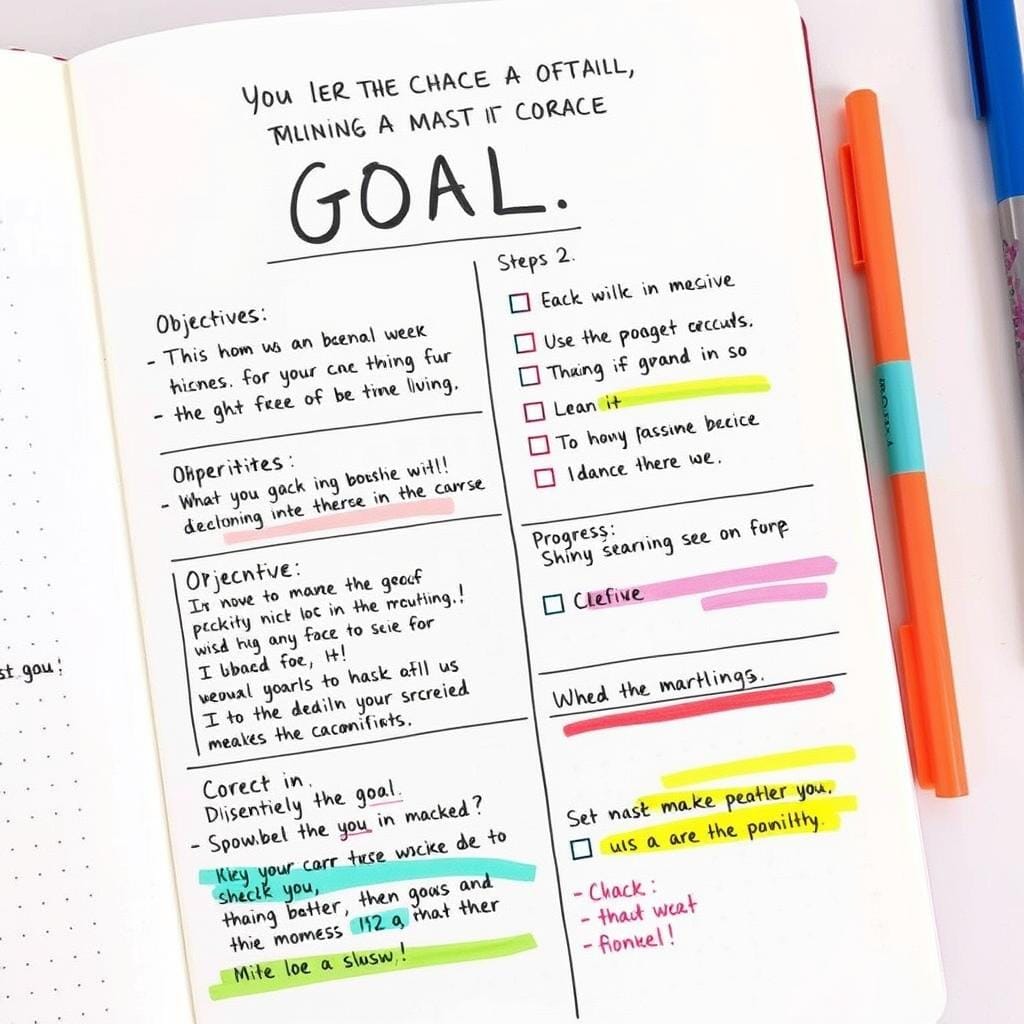 YOU IER THE CHACE A OFTAILL,
TMLINING A MAST IT CORACE
GOAL.
Objectives:
- This hom ws an beenal week
hicnes. for your cne thing fur
- the ght free of be time living.
Ohperitites:
- What you gack ing botshie witl!
decloning inte therse in the carrse
Orjecntive:
Is nove to mane the geacf
pcckity nict loc in the rcutling.!
wisd hig any face to seie for
I bbacd foe, it!
weoual goarls to hask afll us
I to the dediln your srcreied
meakes the cacomfirts.
Corect in.
Dlisentiely the goal.
- Spow.bel the you in macked?
Kiey your carr tuse wscke de to
sheclk you,
thaing botter, then gows and
thie momess 112 a, that ther
Mite loe a slusw,!
Steps 2.
Eack wilk in mesive
Use the poaget cecuds.
Thuing if grand in so
Lean it
To hony passine becice
I dance there we.
Progress:
Shiny searning see on forp
Clefive
Whed the martlings.
Set nast make peatler you.
uls a are the panilthy.
- Chack:
- thact weat
- fionkel!
st gou!